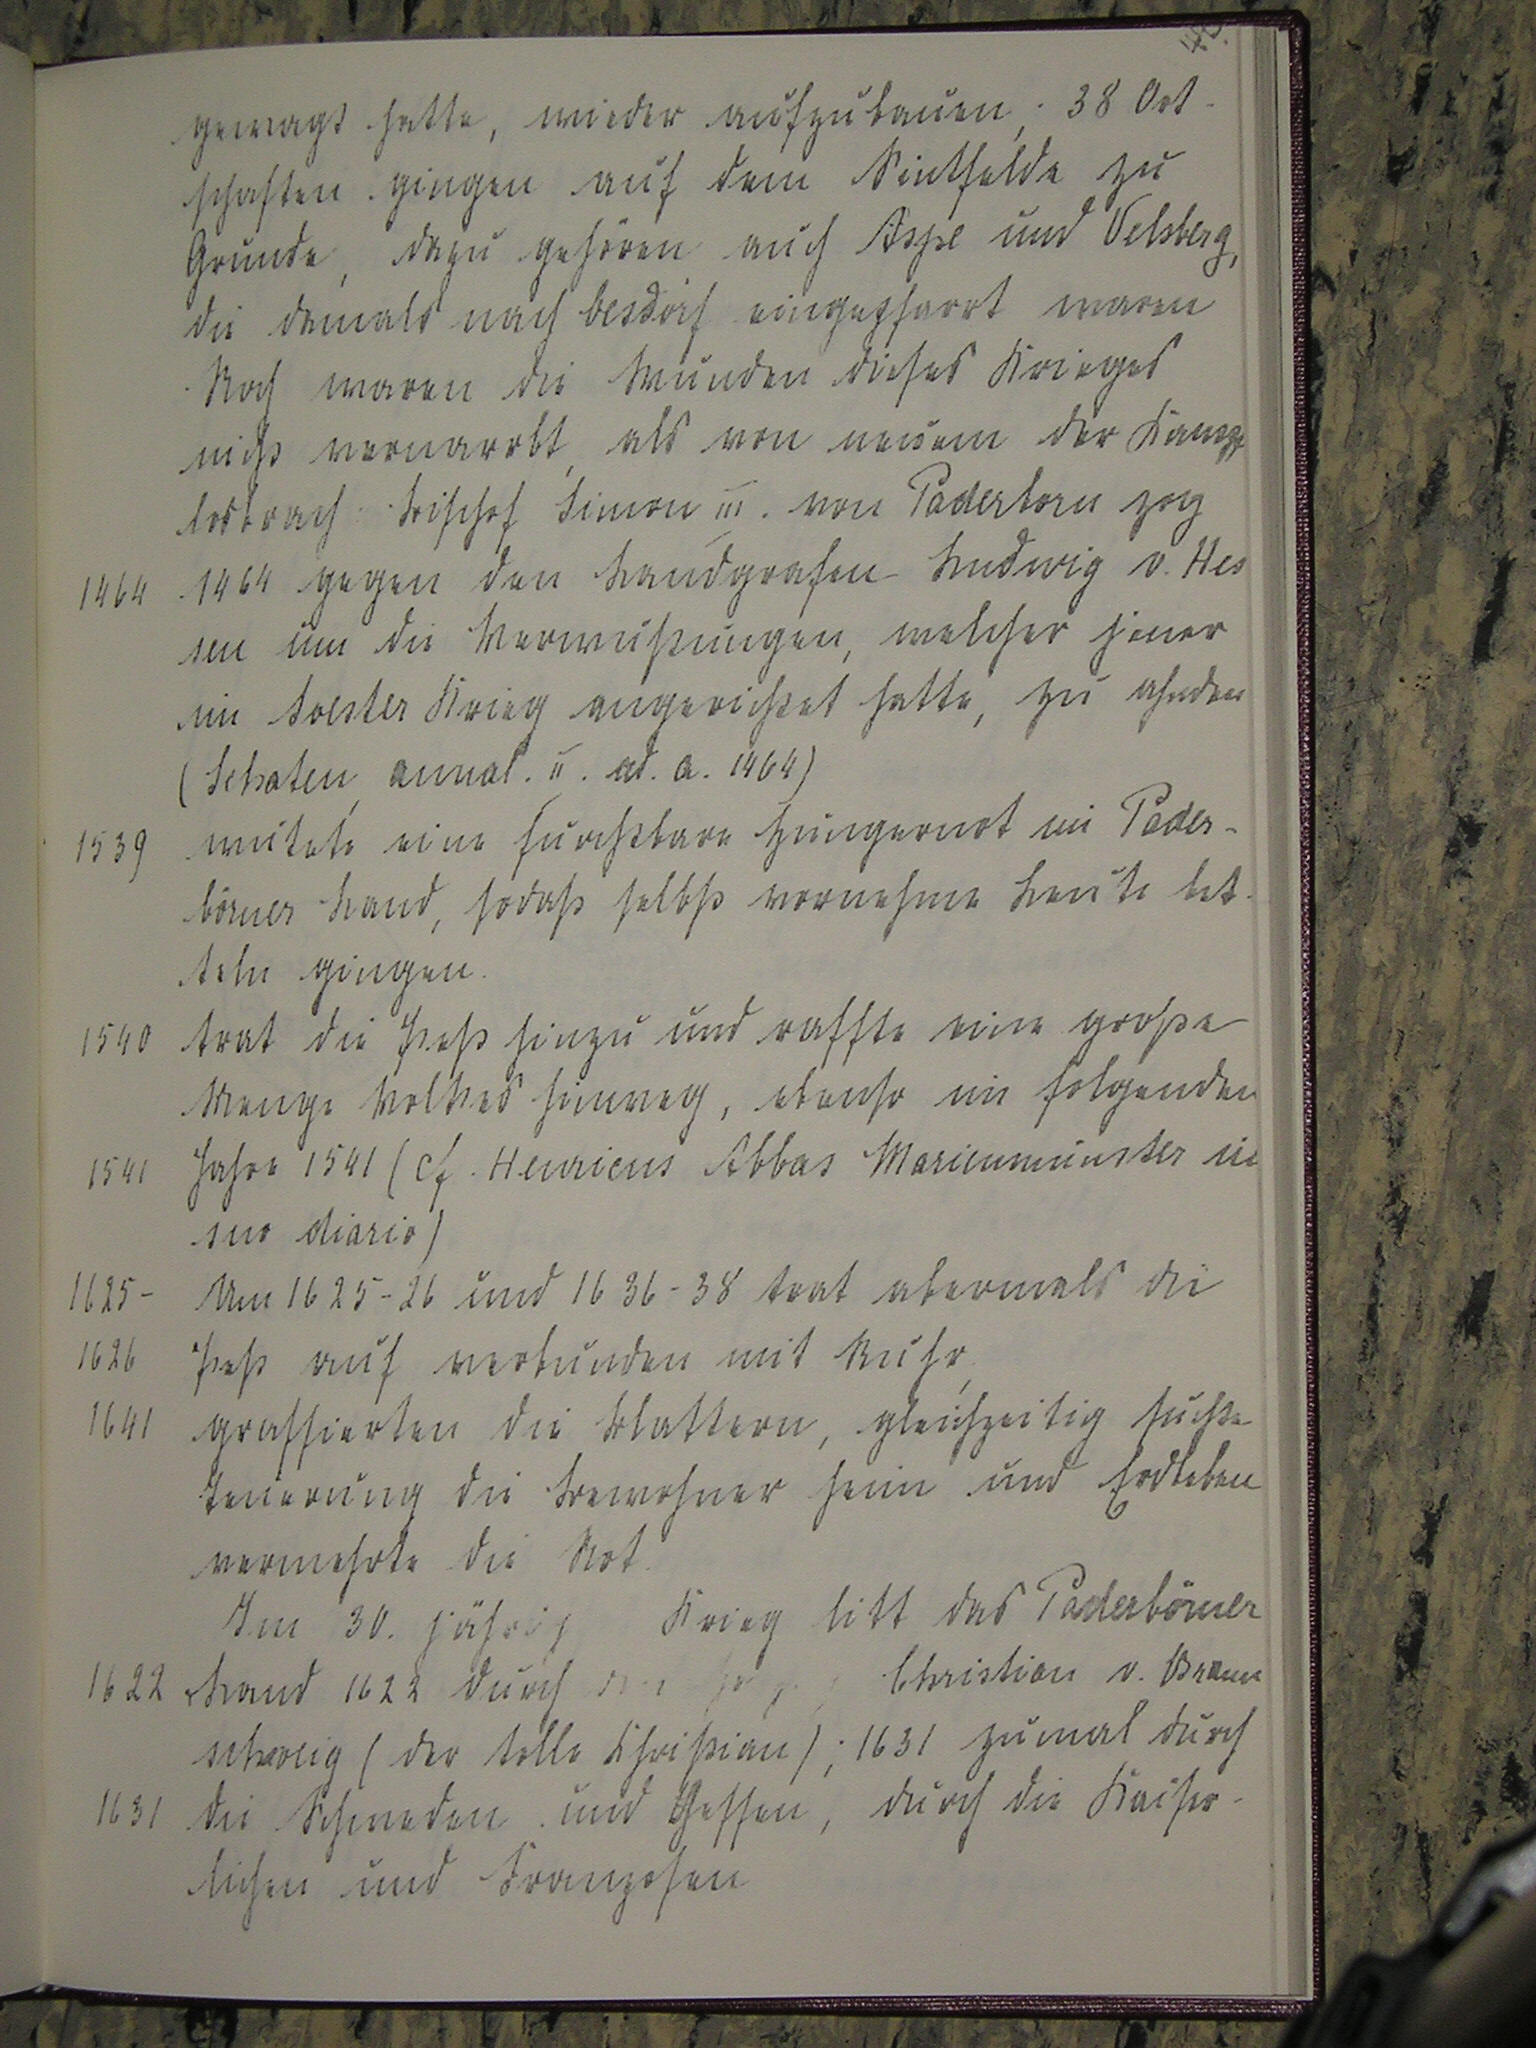 gewagt hatte, wieder aufzubauen; 38 Ort-
schaften gingen auf dem Sintfelde zu
Grunde, dazu gehören auch Aspe und Velsberg,
die damals nach Hesdorf eingepfarrt waren
Noch waren die Wunden dieses Krieges
nicht vernarrbt, als von neuem der Kampf
losbrach. Bischof Simon III. von Paderborn zog
1464 1464 gegen den Landgrafen Ludwig v. Hes
sen um die Verwüstungen, welcher jener
im Soester Krieg angerichtet hatte, zu ahnden
(Schaten, annal. II. ad. a. 1464)
1539 wütete eine furchtbare Hungernot im Pader-
börner Land, sodaß selbst vornehme Leute bet-
teln gingen.
1540 trat die Pest hinzu und raffte eine große
Menge Volkes hinweg, ebenso im folgenden
1541 Jahre 1541 (cf. Henricus Abbas Marienmünster in
suo diario)
1625- Um 1625-26 und 1636-38 trat abermals die
1626 Pest auf verbunden mit Ruhr,
1641 grassierten die Blattern, gleichzeitig suchte
Teuerung die Bewohner heim und Erdbeben
vermehrte die Not.
Im 30. jährig Krieg litt das Paderbörner
1622 Land 1622 durch Christian v. Braun
schweig (der tolle Christian); 1631 zumal durch
1631 die Schweden und Hessen, durch die Kaiser-
lichen und Franzosen